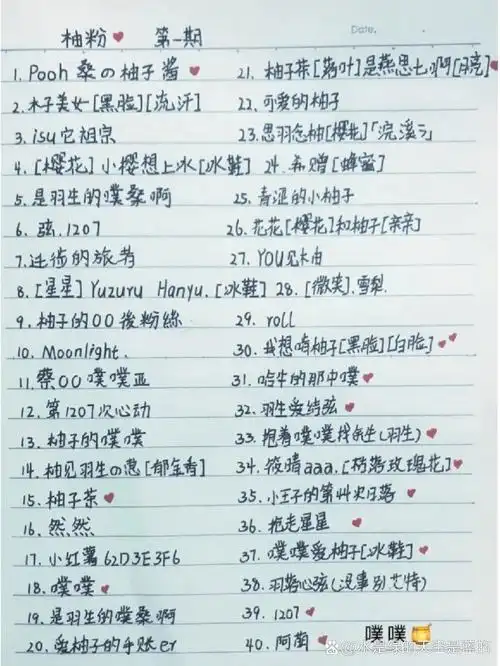 柚粉❤ 第一期
Date.
1. Pooh桑の柚子酱❤
2. 木子美女[黑脸][流汗]
3. isu它祖宗
4. [樱花]小樱想上冰[冰鞋]
5. 是羽生的噗桑啊
6. 弦.1207
7. 迁徙的旅者
8. [星星] Yuzuru Hanyu. [冰鞋]
9. 柚子的00後粉絲
10. Moonlight.
11. 蔡00噗噗亚
12. 第1207次心动
13. 柚子的噗噗
14. 柚见羽生の葱[郁金香]
15. 柚子茶❤
16. 然然
17. 小红薯62D3E3F6
18. 噗噗❤
19. 是羽生的噗桑啊
20. 爱柚子的手账er
21. 柚子茶[落叶]是燕思七啊[月亮]❤
22. 可爱的柚子
23. 思羽念柚[樱花]「浣溪
24. 希赠[蜂蜜]
25. 青涩的小柚子
26. 花花[樱花]和柚子[亲亲]
27. YOU见木白
28. [微笑].雪梨.
29. roll
30. 我想有柚子[黑脸][白脸]❤❤
31. 哈牛的那中噗❤
32. 羽生爱结弦❤
33. 抱着噗噗找余生(羽生)❤
34. 筱晴aaa.[枯落玫瑰花]❤
35. 小王子的第44次日落❤
36. 抱走星星❤
37. 噗噗爱柚子[冰鞋]❤
38. 羽落心弦(没事别艾特)
39. 1207❤
40. 阿菌❤
噗噗🍯